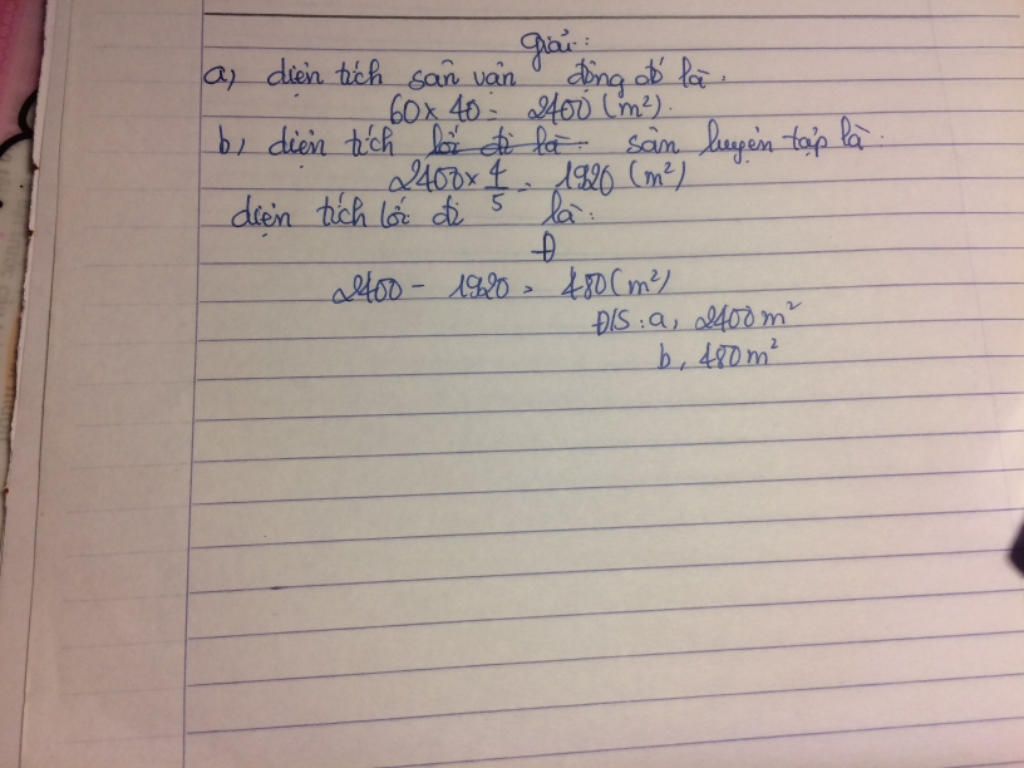 giải:
a, diện tích sân vận động đó là.
60 × 40 = 2400 (m²).
b, diện tích lối đi là: sân luyện tập là:
2400 × 4/5 = 1920 (m²)
diện tích lối đi là:
Đ
2400 - 1920 = 480 (m²)
Đ/S: a, 2400 m²
b, 480 m²